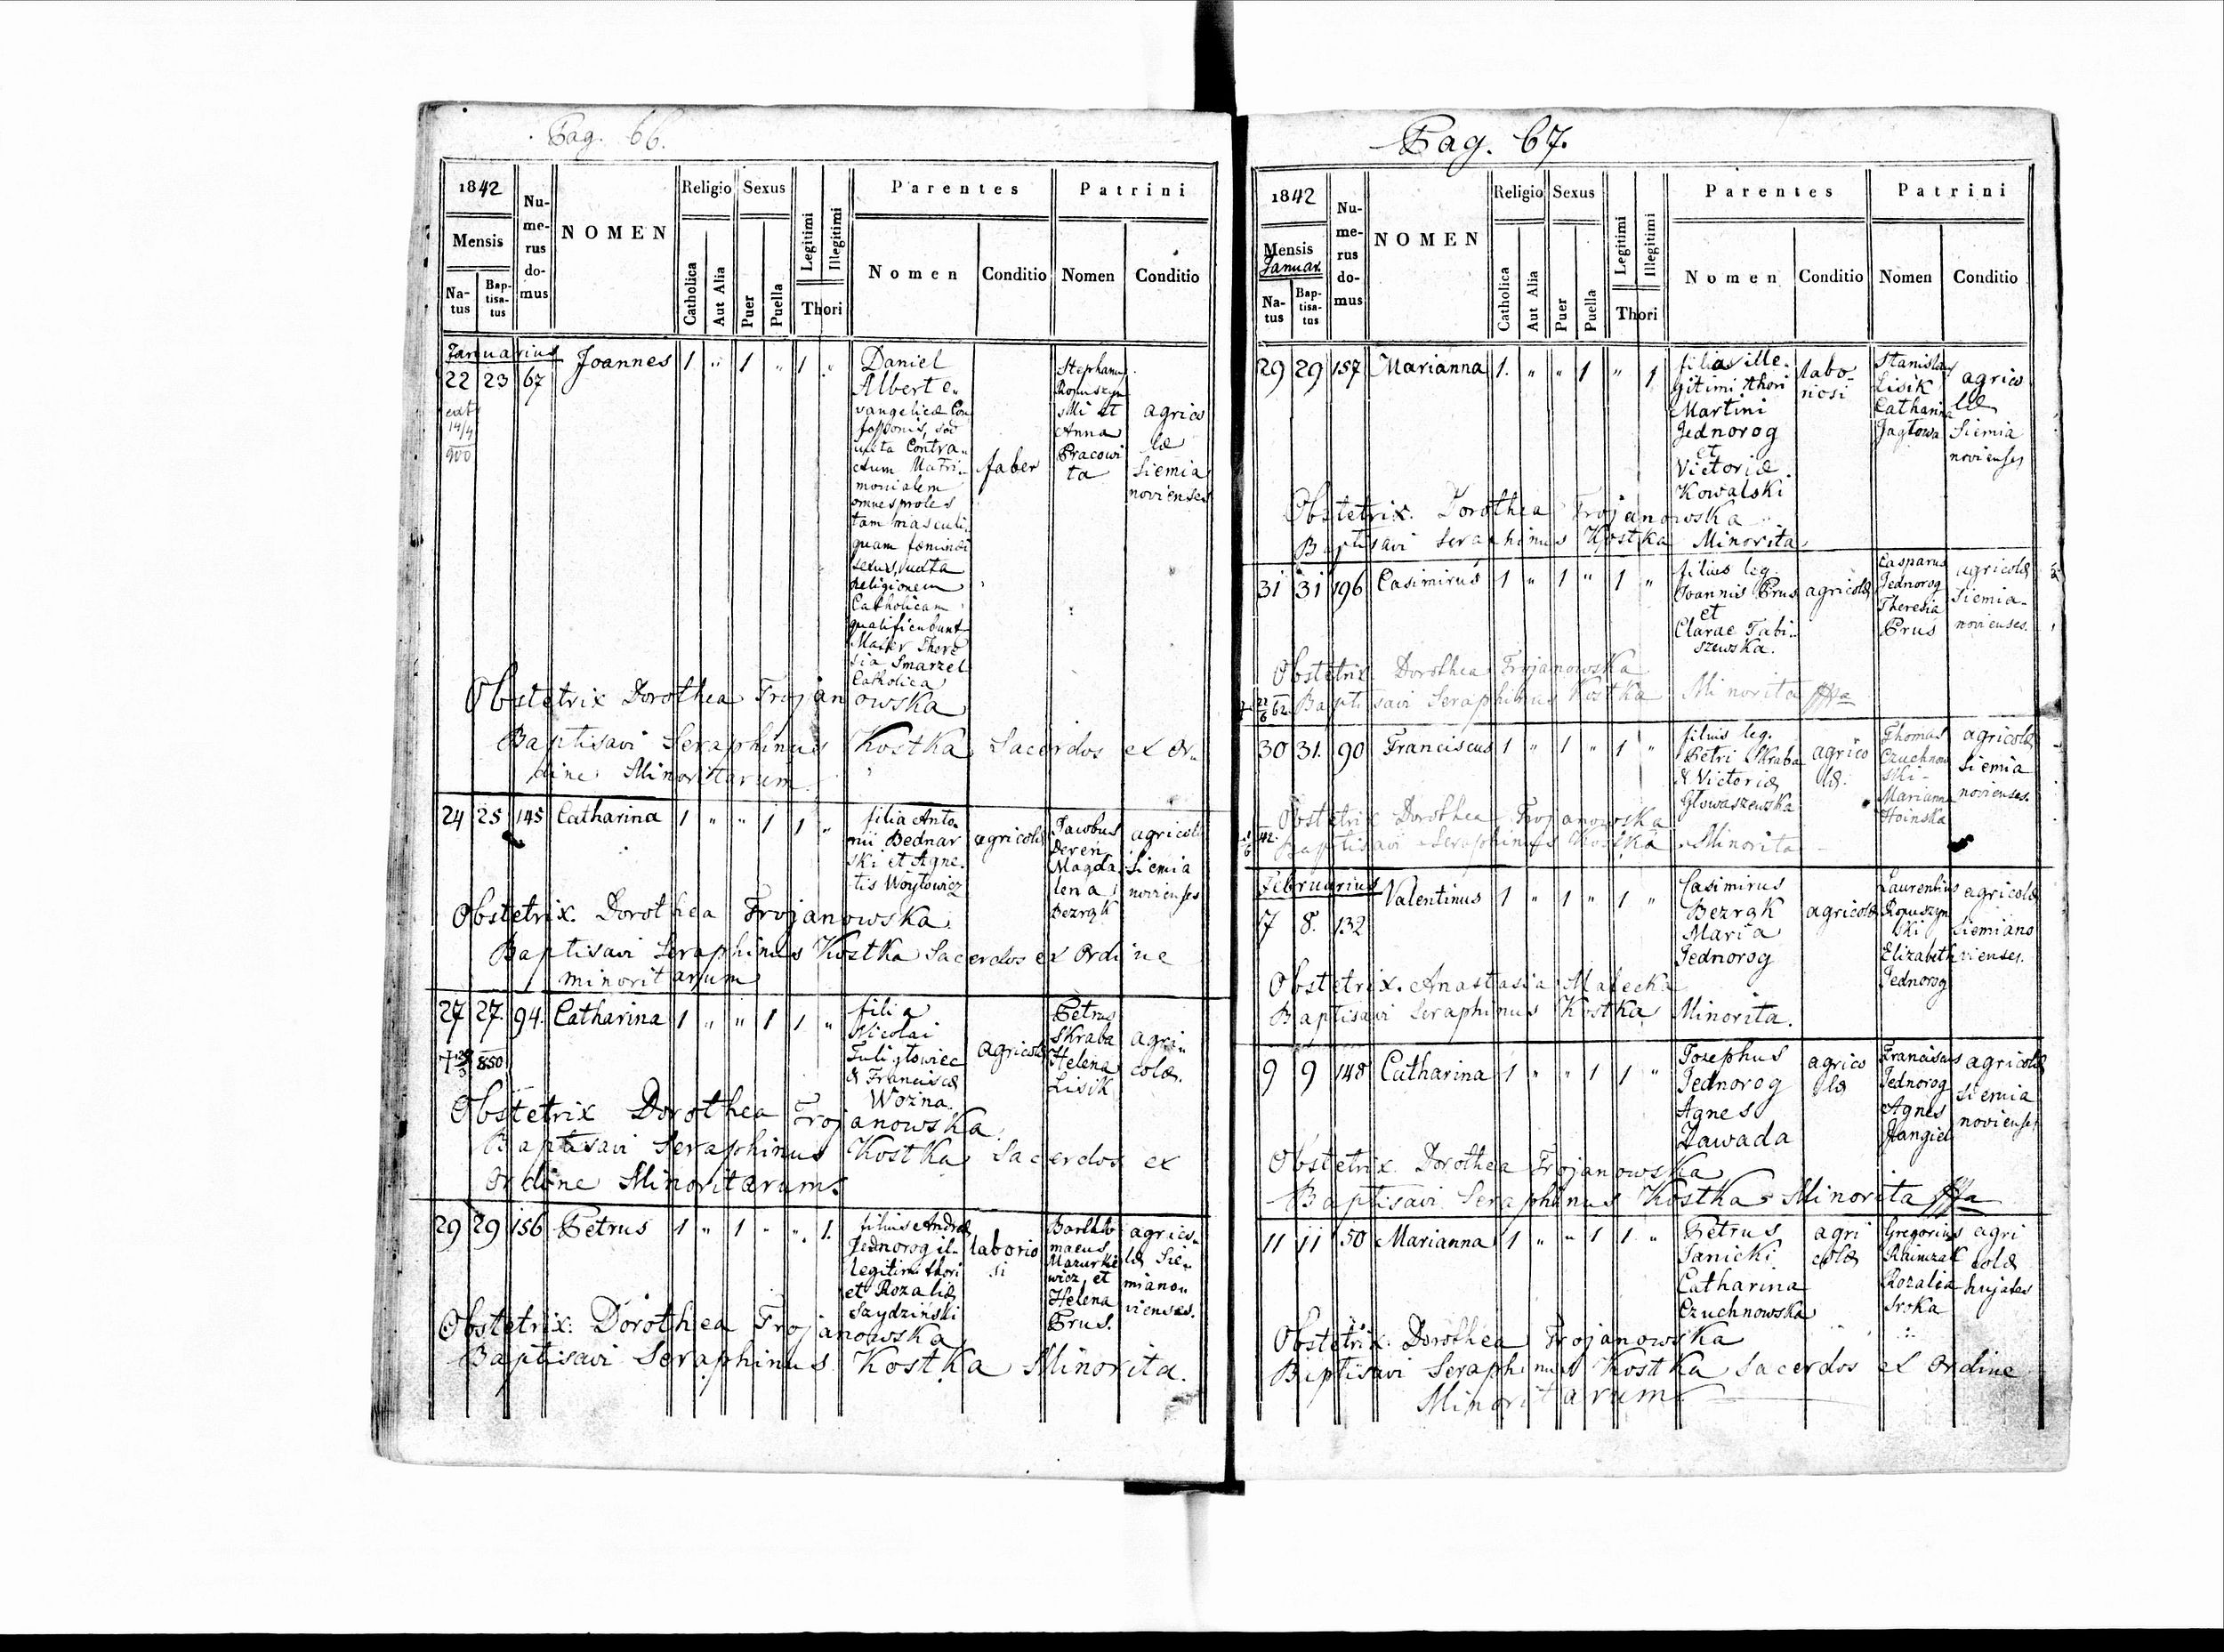 Pag. 66.
1842
Mensis
Na-
tus
Bap-
tisa-
tus
Nu-
me-
rus
do-
mus
NOMEN
Religio
Catholica
Aut Alia
Sexus
Puer
Puella
Legitimi
Illegitimi
Thori
Parentes
Nomen
Conditio
Patrini
Nomen
Conditio
Januarius
22 23 67 Joannes 1 " 1 " 1 "
Daniel
Albert e-
vangelicæ Con
juxta Contra-
ctum Matri-
monialem
omnes proles
tam masculi
quam fæminei
sexus, juxta
Religionem
Catholicam
Mater There
sia Smarzel
Catholica
faber
Stephanus
Ropuszyn
ski et
Anna
Pracowi
ta
agrico
læ
Siemia
novienses
Obstetrix Dorothea Trojanowska
Baptisavi Seraphinus Kostka Sacerdos ex Or-
dine Minoritarum
24 25 145 Catharina 1 " " 1 1 "
filia Anto-
nii Bednar
ski et Agne-
tis Woytowicz
agricolæ
Jacobus
Deren
Magda
lena
Bezrąk
agricolæ
Siemia
novienses
Obstetrix. Dorothea Trojanowska
Baptisavi Seraphinus Kostka Sacerdos ex Ordine
minoritarum
27 27. 94. Catharina 1 " " 1 1 "
850
filia
Nicolai
Tuligłowiec
& Franciscæ
Wozna
agricolæ
Petrus
Skraba
Helena
Lisik
agri-
colæ.
Obstetrix Dorothea Trojanowska
Baptisavi Seraphinus Kostka Sacerdos ex
Ordine Minoritarum.
29 29 156 Petrus 1 " 1 " " 1.
filius Andreæ
Jednorog il-
legitimi thori
et Rozaliæ
Szydziński
laborio
si
Bartholo
maeus
Mazurkie
wicz et
Helena
Prus.
agrico-
læ Sie-
miano-
vienses.
Obstetrix: Dorothea Trojanowska
Baptisavi Seraphinus Kostka Minorita.
Pag. 67.
1842
Mensis
Januar.
Na-
tus
Bap-
tisa-
tus
Nu-
me-
rus
do-
mus
NOMEN
Religio
Catholica
Aut Alia
Sexus
Puer
Puella
Legitimi
Illegitimi
Thori
Parentes
Nomen
Conditio
Patrini
Nomen
Conditio
29 29 157 Marianna 1. " " 1 " 1
filia ille-
gitimi thori
Martini
Jednorog
et
Victoriæ
Kowalski
labo-
riosi
Stanislaus
Lisik
Catharina
Jagłowa
agrico
læ
Siemia
novienses
Obstetrix. Dorothea Trojanowska
Baptisavi Seraphinus Kostka Minorita
31 31 196 Casimirus 1 " 1 " 1 "
filius leg.
Joannis Prus
et
Clarae Tabi-
szewska.
agricolæ
Casparus
Jednorog
Theresia
Prus
agricolæ
Siemia-
novienses.
Obstetrix Dorothea Trojanowska
Baptisavi Seraphinus Kostka Minorita
30 31. 90 Franciscus 1 " 1 " 1 "
filius leg.
Petri Skraba
& Victoriæ
Głowaszewska
agrico
læ.
Thomas
Czuchnow
ski
Marianna
Hoinska
agricolæ
Siemia
novienses.
Obstetrix Dorothea Trojanowska
Baptisavi Seraphinus Kostka Minorita
Februarius
7 8. 132 Valentinus 1 " 1 " 1 "
Casimirus
Bezrąk
Maria
Jednorog
agricolæ
Laurentius
Ropuszyn
ski
Elizabeth
Jednorog
agricolæ
Siemiano
vienses.
Obstetrix. Anastasia Małecka
Baptisavi Seraphinus Kostka Minorita.
9 9 148 Catharina 1 " " 1 1 "
Josephus
Jednorog
Agnes
Zawada
agrico
læ
Franciscus
Jednorog
Agnes
agricolæ
Siemia
novienses
Obstetrix. Dorothea Trojanowska
Baptisavi Seraphinus Kostka Minorita
11 11 50 Marianna 1 " " 1 1 "
Petrus
Sanicki
Catharina
Czuchnowska
agri
colæ
Gregorius
Rozalia
Sroka
agri
colæ
hujates
Obstetrix. Dorothea Trojanowska
Baptisavi Seraphinus Kostka Sacerdos ex Ordine
Minoritarum